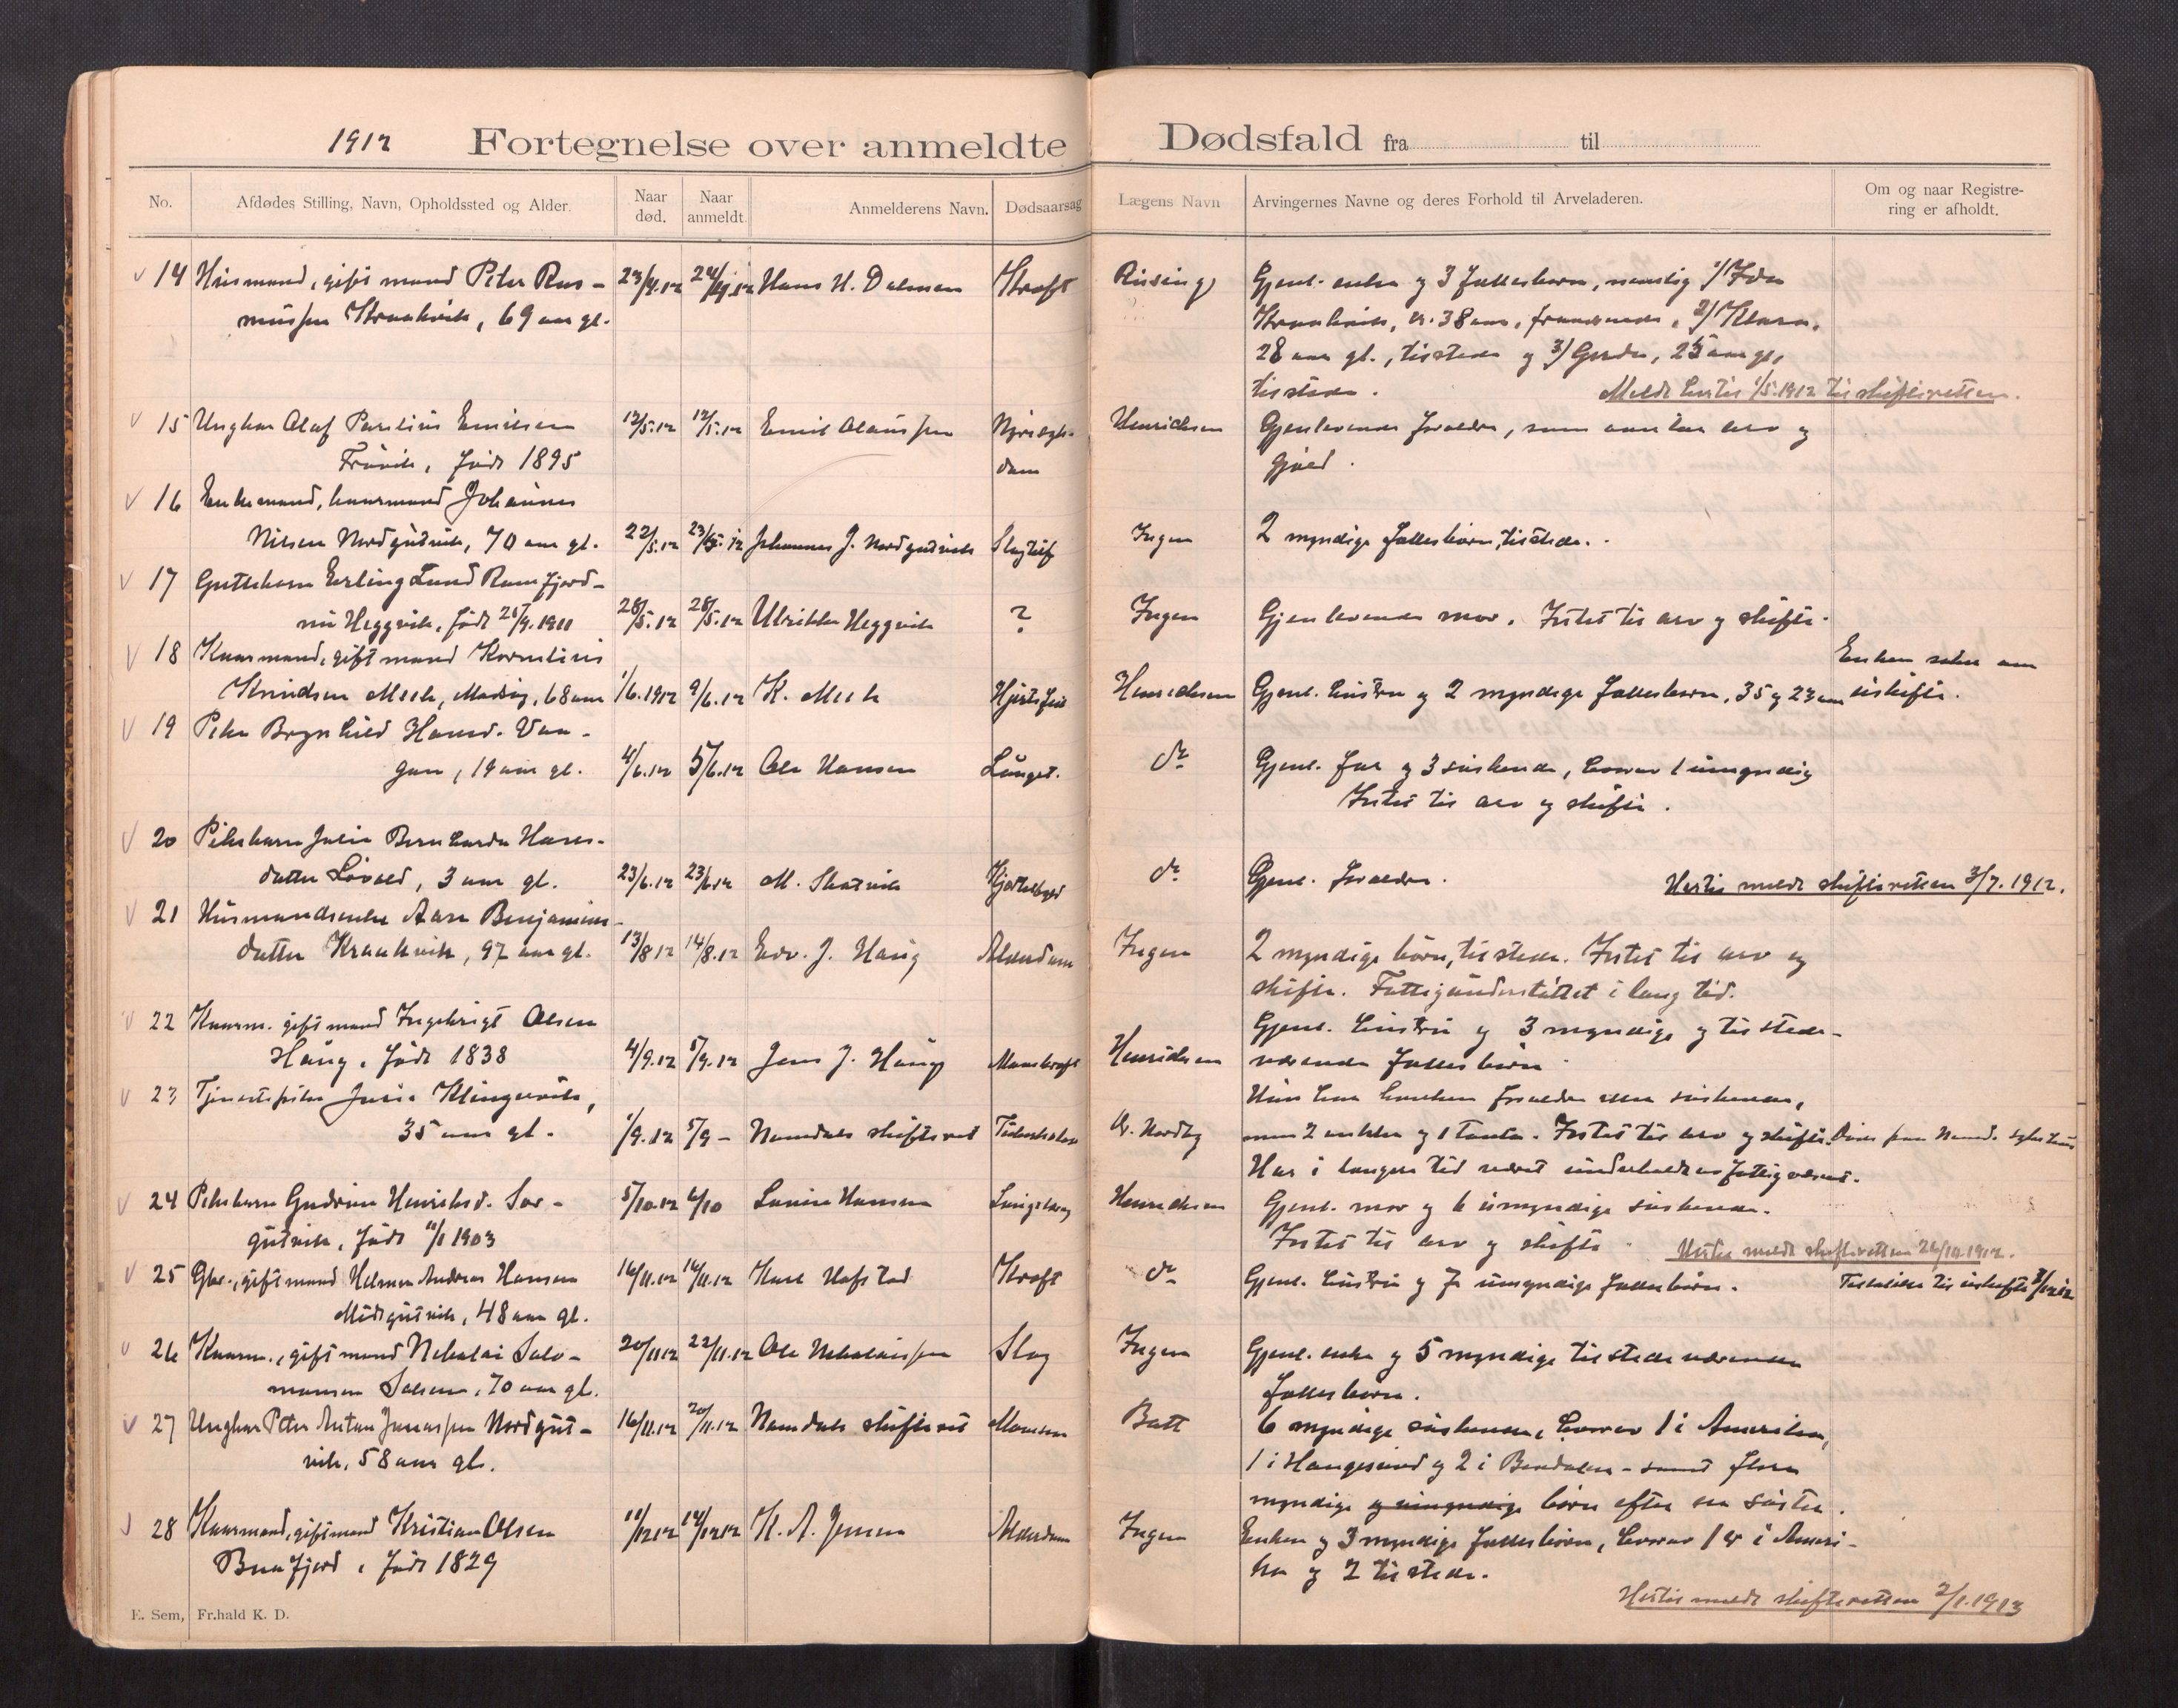 1912 Fortegnelse over anmeldte Dødsfald fra til
No. Afdødes Stilling, Navn, Opholdssted og Alder. Naar død. Naar anmeldt. Anmelderens Navn. Dødsaarsag Lægens Navn Arvingernes Navne og deres Forhold til Arveladeren. Om og naar Registrering er afholdt.
14 Husmand, gift mand Peter Ras- 23/4.12 24/4.12 Hans H. Dalmen Kræft Gjenl. enke og 3 fællesbørn, nemlig 1/ Ida
mussen Kraakvik, 69 aar gl. Kraakvik, ca. 38 aar, fraværende, 2/ Klara,
28 aar gl., tilstede og 3/ Gerda, 25 aar gl,
tilstede. Meldt hertil 1/5.1912 til skifteretten.
15 Ungkar Olaf Paulius Emilsen 12/5.12 12/5.12 Emil Olaussen Henriksen Gjenlevende forældre, som antar arv og
født 1895 gjæld.
16 Enkemand, kaarmand Johannes
Nilsen Nordgutvik, 70 aar gl. 22/5.12 23/5.12 Johannes J. Nordgutvik Slagtilf Ingen 2 myndige fællesbørn, tilstede.
17 Guttebarn Erling Lund Ramfjord-
Heggvik, født 1911 28/5.12 28/5.12 Ulrikke Heggvik ? Ingen Gjenlevende mor. Intet til arv og skifte.
18 Kaarmand, gift mand Kornelius Enken søker om
Knudsen Mech, 68 aar 1/6.1912 9/6.12 K. Mech Hjertefeil Henriksen Gjenl. hustru og 2 myndige fællesbørn, 35 og 23 aar uskifte.
19 Pike Brynhild Hansd. Vaa-
gan, 19 aar gl. 4/6.12 5/6.12 Ole Hansen Lunget. do Gjenl. far og 3 søskende, hvorav 1 umyndig
Intet til arv og skifte.
20 Pikebarn Julie Bernharda Hans-
datter, 3 aar gl. 23/6.12 23/6.12 M. do Gjenl. forældre. Hertil meldt skifteretten 3/7.1912.
21 Husmandsenke Aase Benjamins-
datter Kraakvik, 97 aar gl. 13/8.12 14/8.12 Edv. J. Haug Alderdom Ingen 2 myndige børn, tilstede. Intet til arv og
skifte. Fattigunderstøttet i lang tid.
22 Kaarm. gift mand Ingebrigt Olsen Gjenl. hustru og 3 myndige og tilstede-
Haug, født 1838 4/9.12 5/9.12 Jens J. Haug Mavekræft Henriksen værende fællesbørn
23 Tjenestepike Julie Klingervik, Hun har hverken forældre eller søskende,
35 aar gl. 1/9.12 5/9 - Namdals skifteret Tuberkulose Dr. Nordby men 2 onkler og 1 tante. Intet til arv og skifte. Døde paa Namd. sykehus
Har i længere tid været underholdt av fattigvæsenet.
24 Pikebarn Gudrun Henriksd. Sør- 5/10.12 6/10 Hansen Henriksen Gjenl. mor og 6 umyndige søskende.
gutvik, født 11/1 1903 Intet til arv og skifte. Hertil meldt skifteretten 26/10.1912.
25 Gbr., gift mand Helmer Andreas Hansen 16/11.12 16/11.12 Karl Hofstad Kræft do Gjenl. hustru og 7 umyndige fællesbørn. Tilladelse til uskifte
Midtgutvik, 48 aar gl.
26 Kaarm., gift mand Nikolai Salo- 20/11 12 22/11.12 Ole Nikolaissen Slag Ingen Gjenl. enke og 5 myndige tilstedeværende
monsen Solsem, 70 aar gl. fællesbørn.
27 Ungkar Peter Anton Jonassen Nordgut- 16/11.12 20/11.12 Namdals skifteret Batt 6 myndige søskende, hvorav 1 i Amerika,
vik, 58 aar gl. 1 i Haugesund og 2 i Bindalen - samt flere
myndige og umyndige børn efter en søster.
28 Kaarmand, gift mand Kristian Olsen 11/12 12 14/12 12 K. A. Jensen Alderdom Ingen Enken og 3 myndige fællesbørn, hvorav 1 er i Ameri-
født 1829 ka og 2 tilstede.
Hertil meldt skifteretten 2/1.1913
E. Sem, Fr.hald K. D.